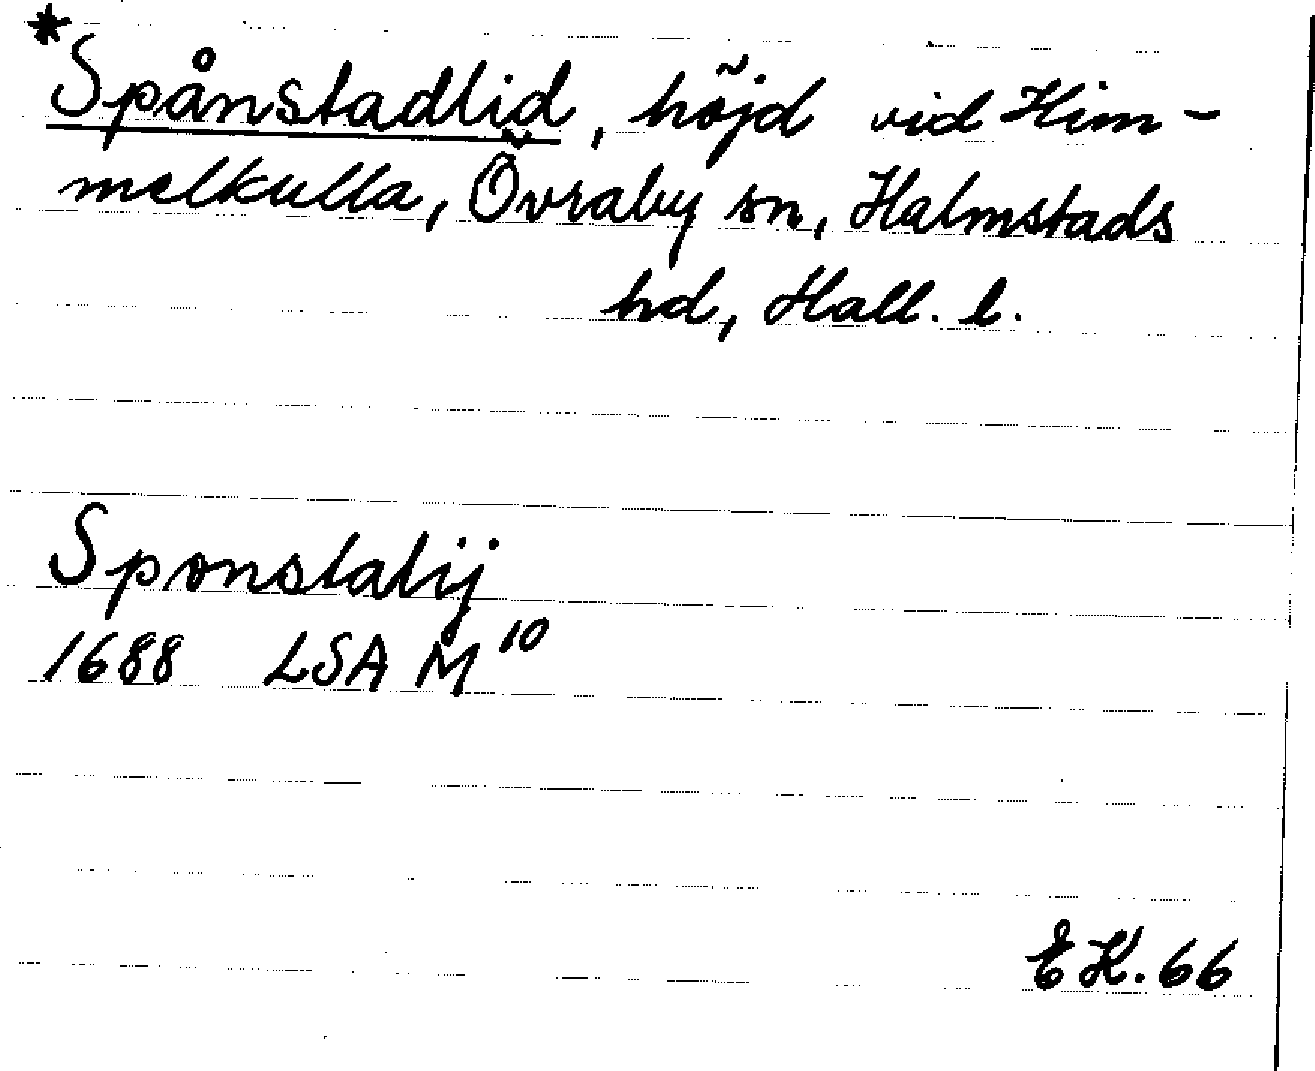 *Spånstadlid, höjd vid Him-
melkulla, Övraby sn, Halmstads
hd, Hall. l.
Sponstalij
1688 LSA M 10
EK. 66